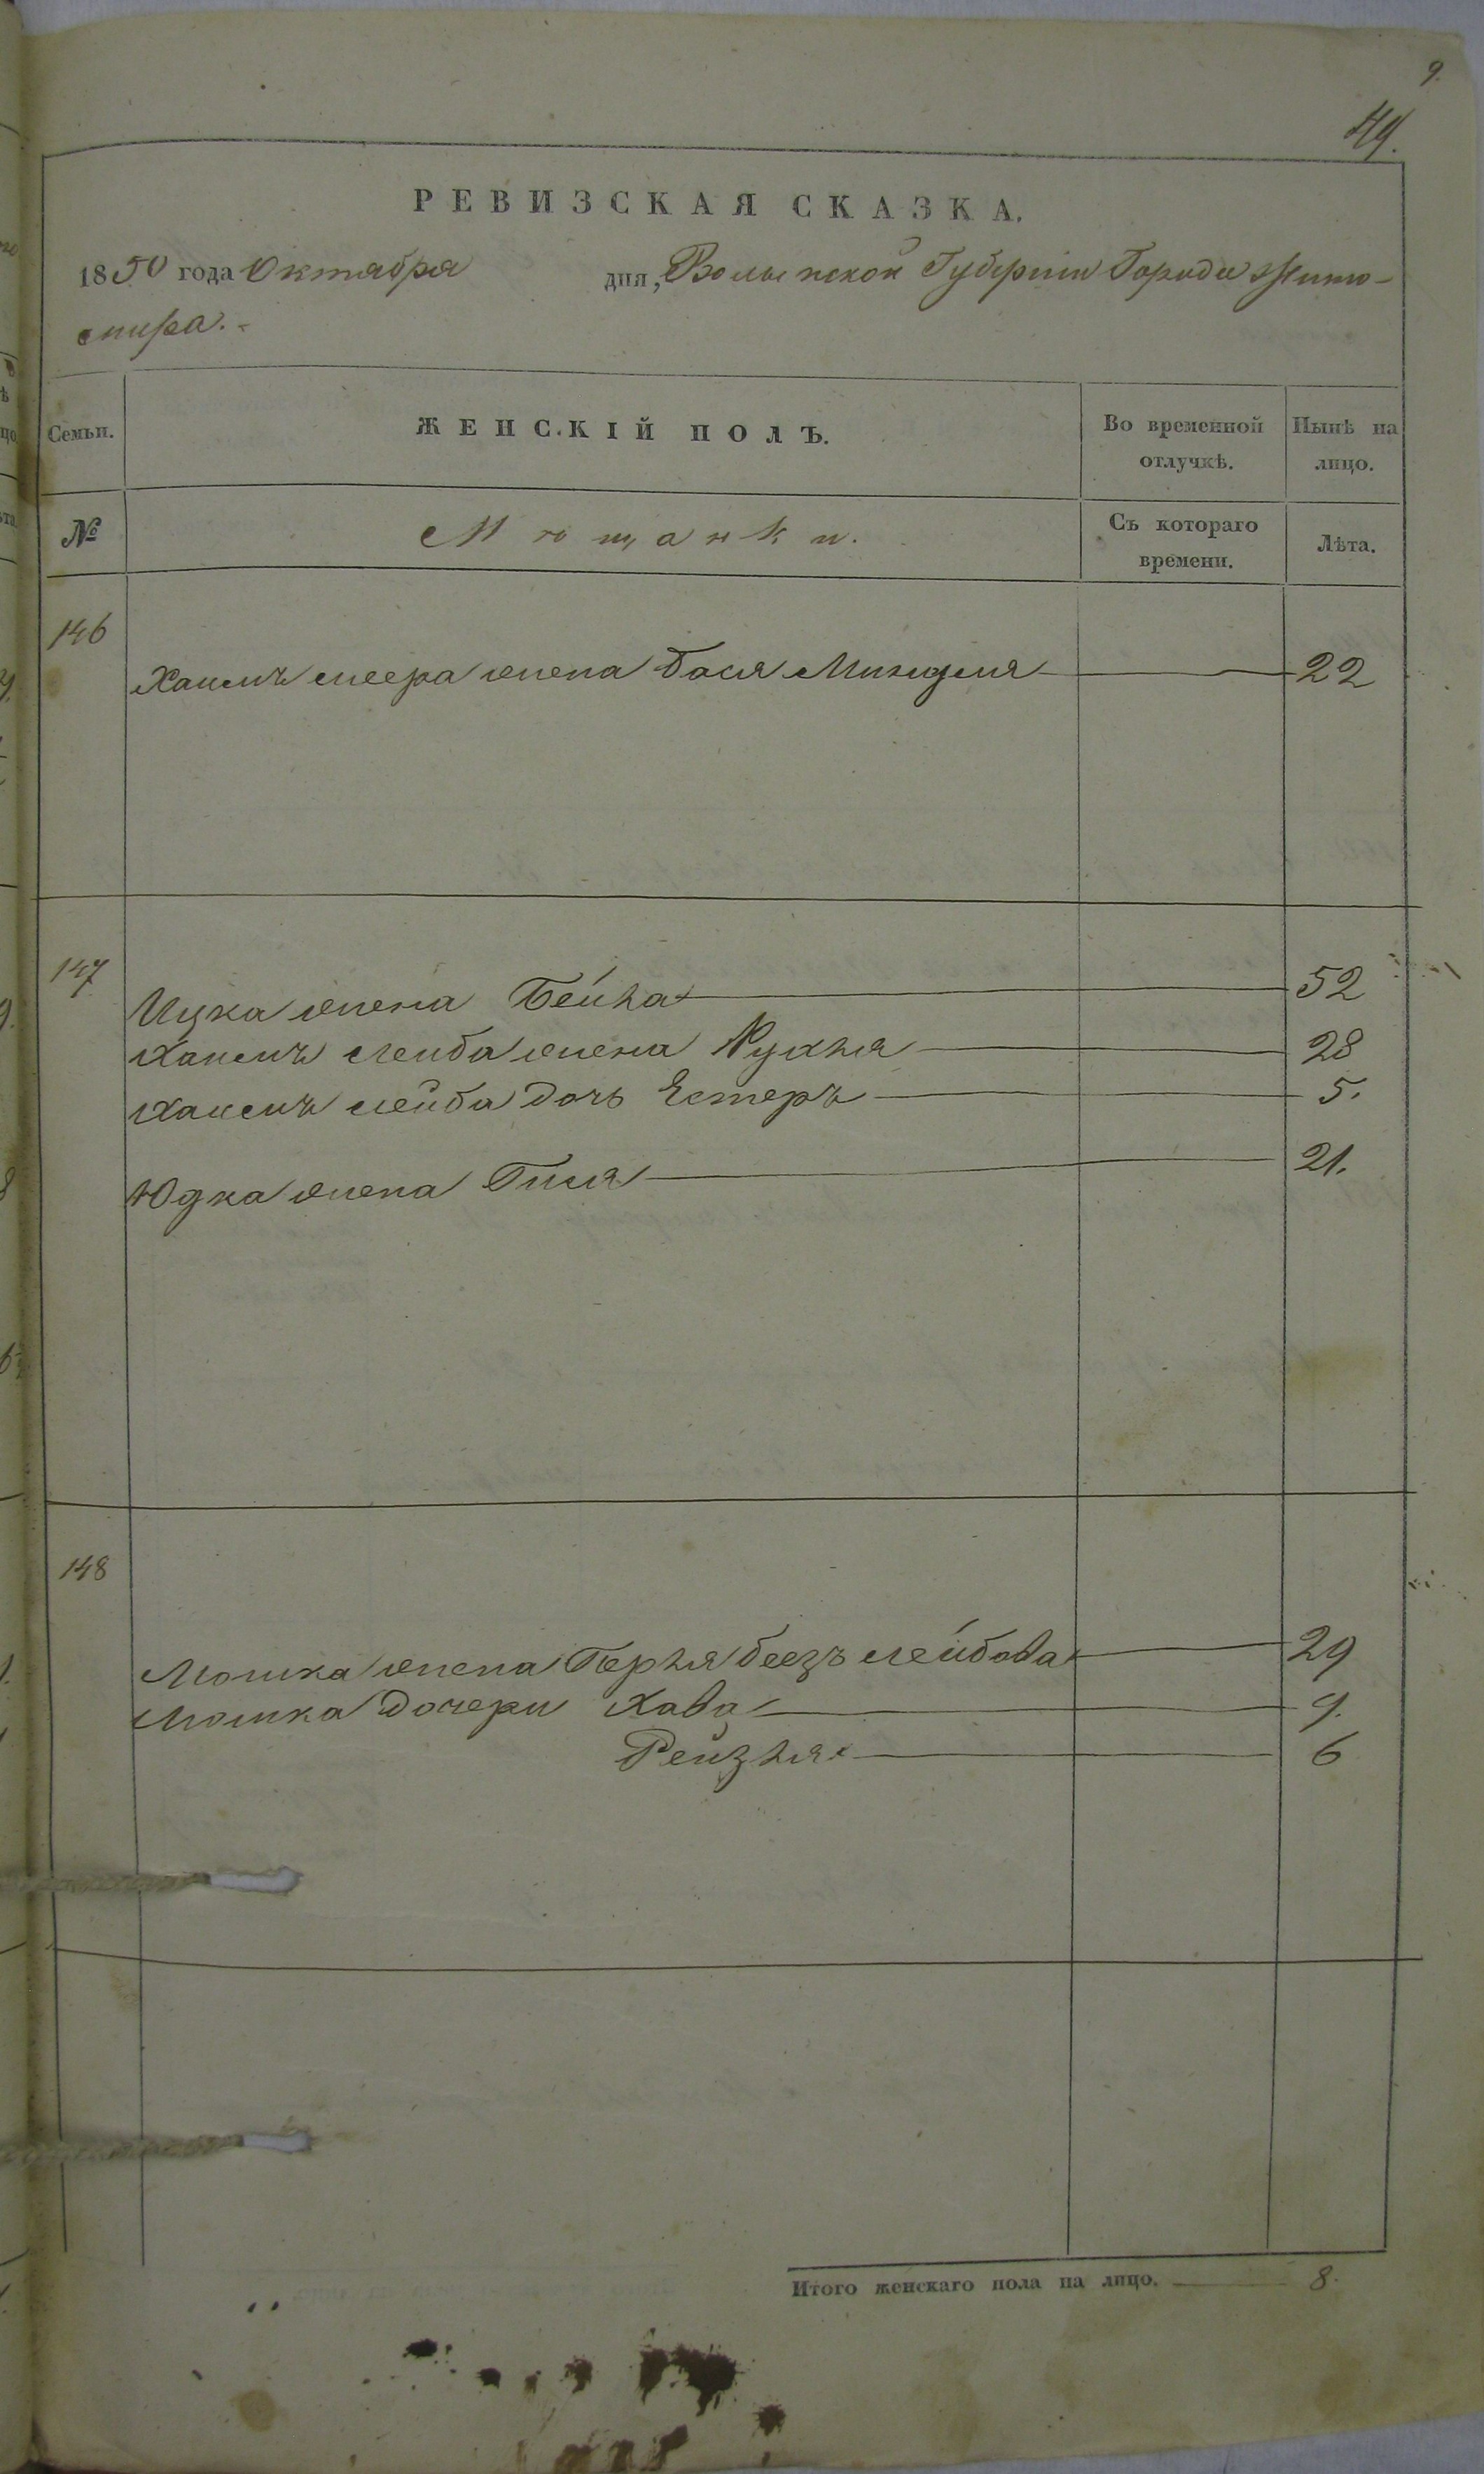 9.
49.
РЕВИЗСКАЯ СКАЗКА.
1850 года Октября дня, Волынской Губерніи Города Жито-
мира.
Семьи. ЖЕНСКІЙ ПОЛЪ. Во временной отлучкѣ. Нынѣ на лицо.
№ Мѣщанки. Съ котораго времени. Лѣта.
146
Хаимъ меера жена Бася Миндля 22
147
Ицка жена Бейла 52
Хаимъ лейба жена Рухля 28
Хаимъ лейба дочь Естеръ 5.
Юдка жена Гися 21.
148
Мошка жена Перля беезъ лейбова 29
Мошка дочери Хава 9.
Рейзля 6
Итого женскаго пола на лицо. 8.